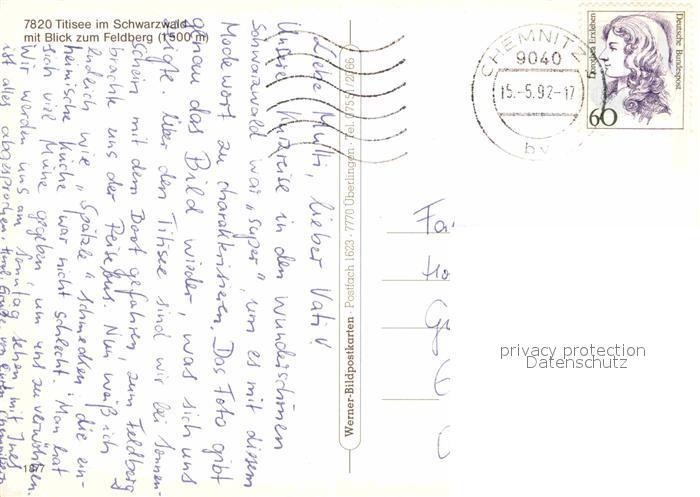 7820 Titisee im Schwarzwald
mit Blick zum Feldberg (1500 m)
Liebe Mutti, lieber Vati!
Unsere Kurzreise in den wunderschönen
Schwarzwald war „super", um es mit diesem
Modewort zu charakterisieren. Das Foto gibt
genau das Bild wieder, was sich uns
zeigte. Über den Titisee sind wir bei Sonnen-
schein mit dem Boot gefahren, zum Feldberg
brachte uns der Reisebus. Nun weiß ich
endlich wie „Spätzle" schmecken, die ein-
heimische Küche war nicht schlecht. Man hat
sich viel Mühe gegeben, um uns zu verwöhnen.
Wir werden uns am Sonntag sehen, mit Ines
ist alles abgesprochen.
Werner-Bildpostkarten · Postfach 1623 · 7770 Überlingen · Tel.
CHEMNITZ
9040
15.-5.92-17
by
Dorothea Erxleben
Deutsche Bundespost
60
Fa
Ha
G
privacy protection
Datenschutz